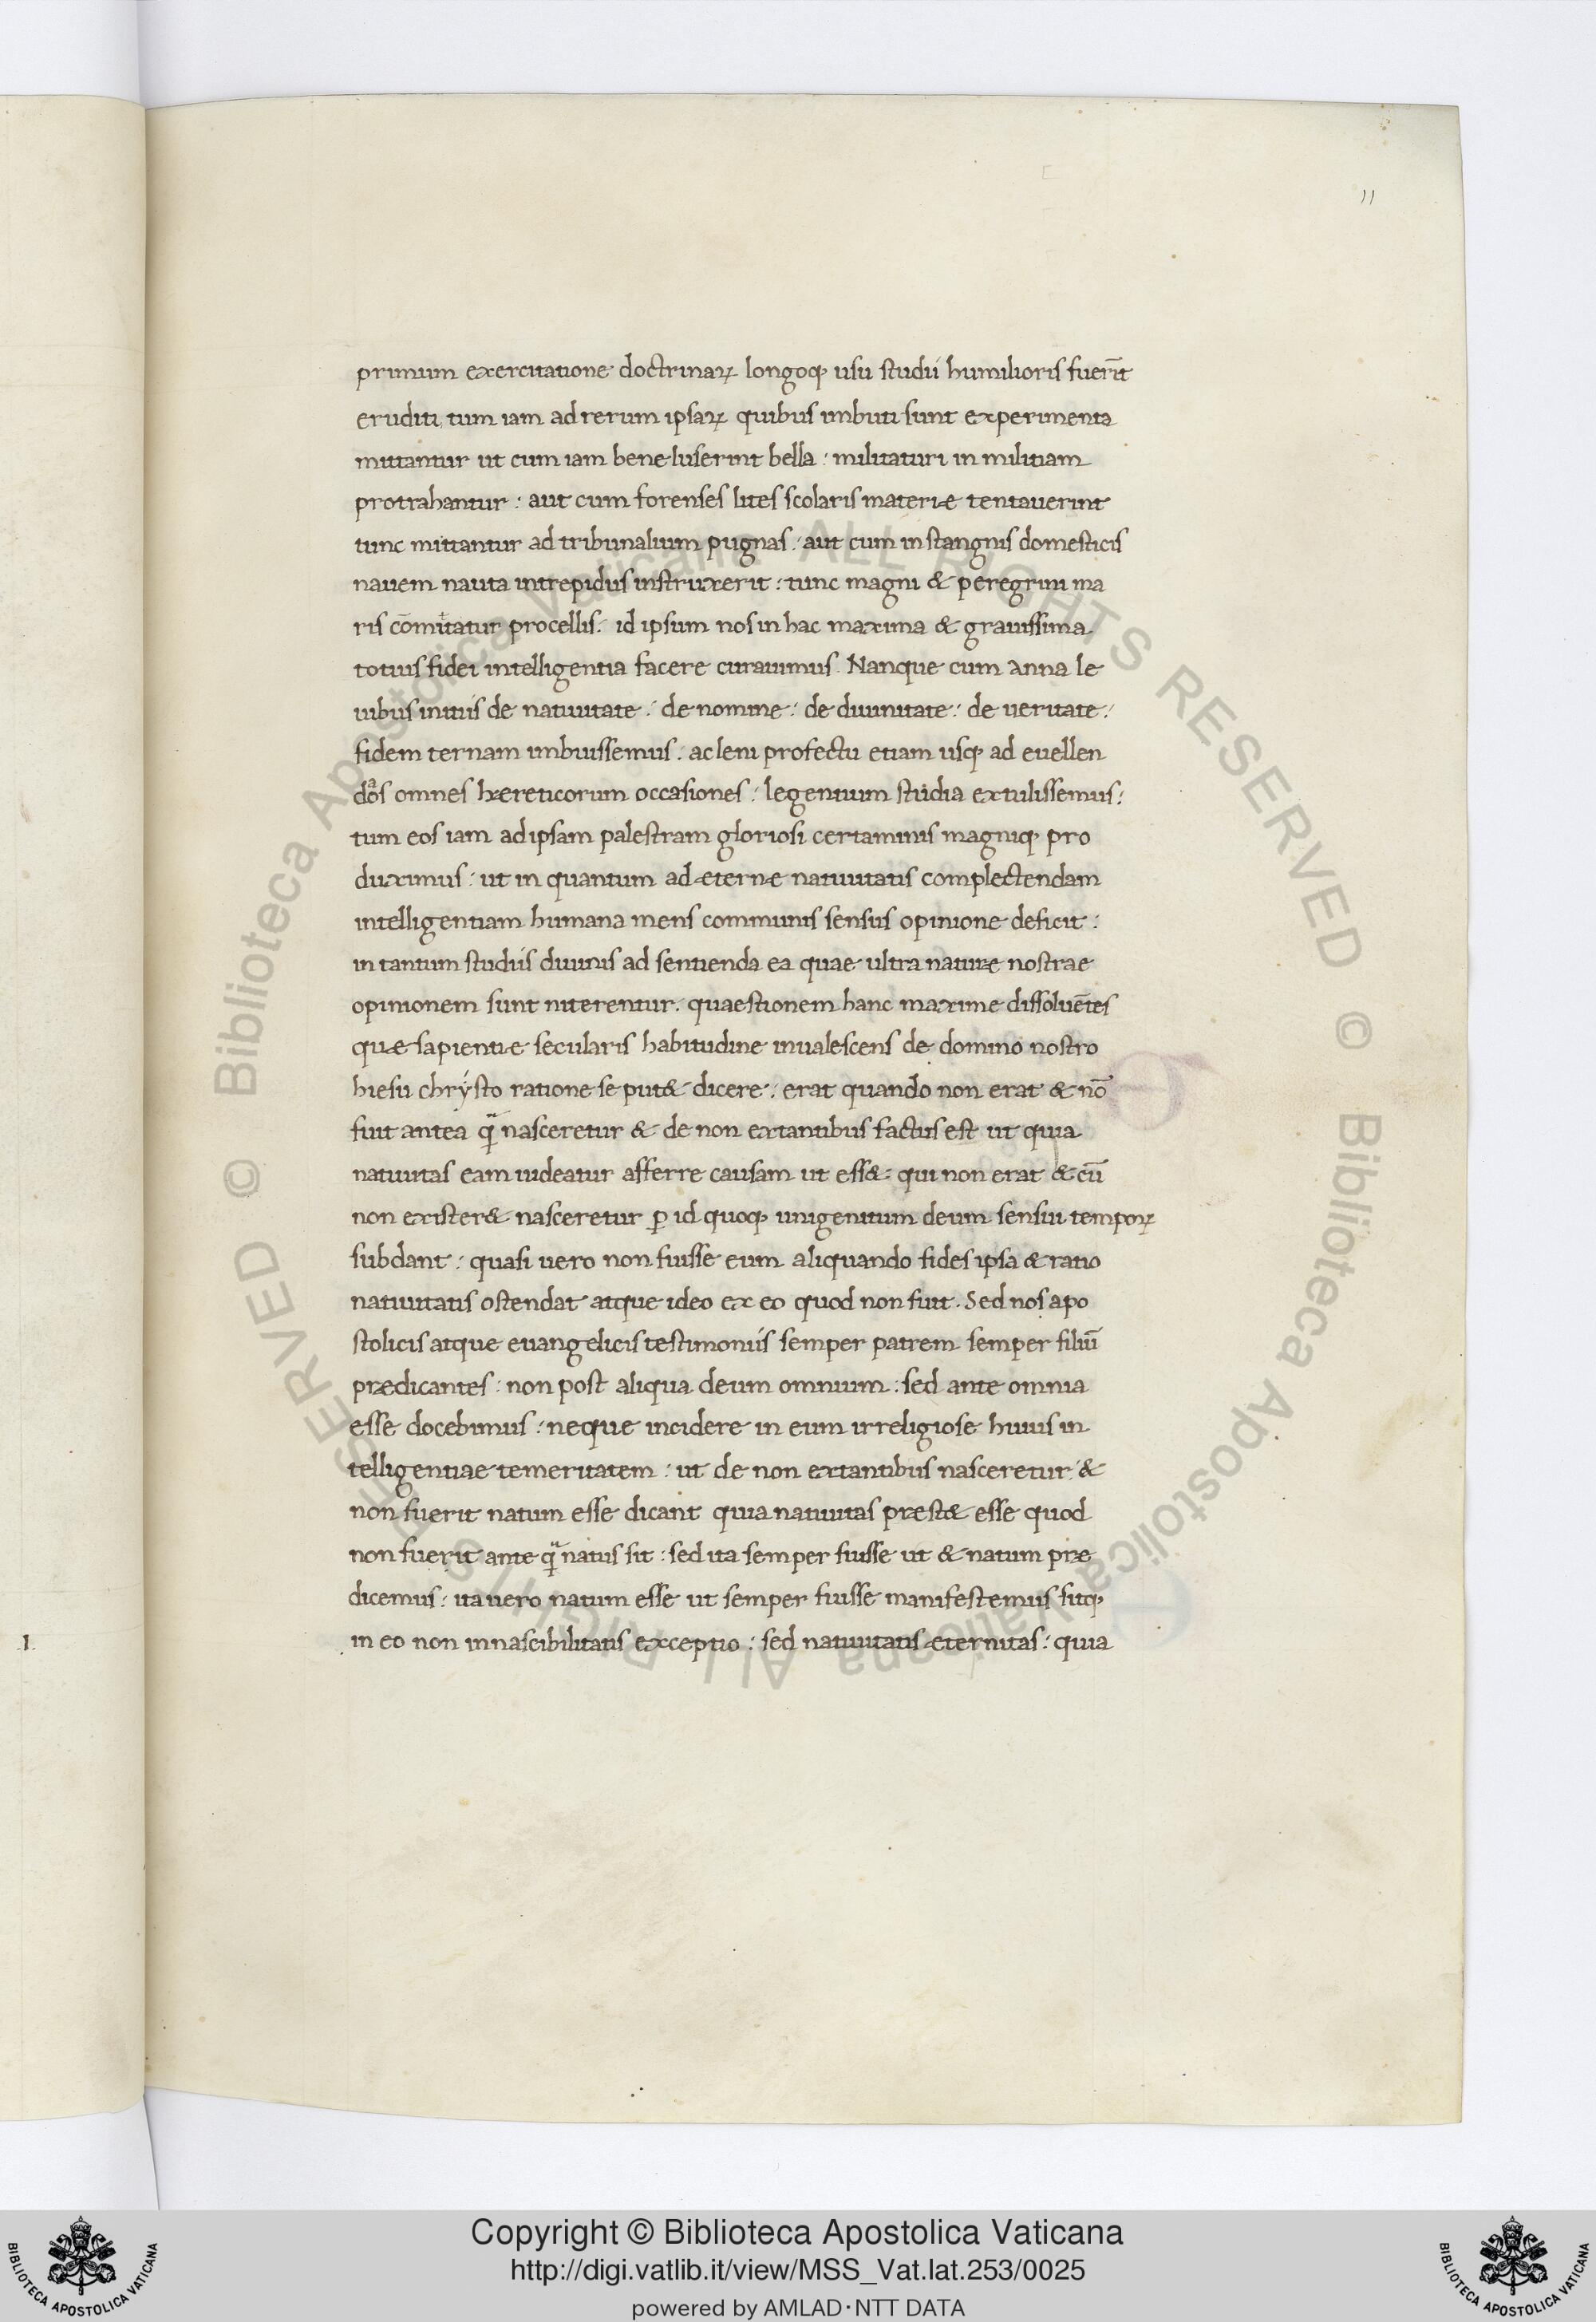 11
primum exercitatione doctrinaꝝ longoqꝫ usu studii humilioris fuerīt
eruditi, tum iam ad rerum ipsaꝝ quibus imbuti sunt experimenta
mittantur ut cum iam bene luserint bella : militaturi in militiam
protrahantur : aut cum forenses lites scolaris materiæ tentauerint
tunc mittantur ad tribunalium pugnas : aut cum in stangnis domesticis
nauem nauta intrepidus instruxerit : tunc magni & peregrini ma
ris cōmitatur procellis : id ipsum nos in hac maxima & grauissima
totius fidei intelligentia facere curauimus. Nanque cum anna le
uibus initiis de natiuitate : de nomine : de diuinitate : de ueritate :
fidem ternam imbuissemus : ac leni profectu etiam usqꝫ ad euellen
dos omnes hæreticorum occasiones : legentium studia extulissemus :
tum eos iam ad ipsam palestram gloriosi certaminis magniqꝫ pro
duximus : ut in quantum ad æternæ natiuitatis complectendam
intelligentiam humana mens communis sensus opinione deficit :
in tantum studiis diuinis ad sentienda ea quae ultra naturæ nostrae
opinionem sunt niterentur. quaestionem hanc maxime dissoluētes
quæ sapientiæ secularis habitudine inualescens de domino nostro
hiesu chrysto ratione se put& dicere : erat quando non erat & nō
fuit antea q̃ nasceretur & de non extantibus factus est ut quia
natiuitas eam uideatur afferre causam ut ess& qui non erat & cū
non exister& nasceretur ꝑ id quoqꝫ unigenitum deum sensui tempoꝝ
subdant : quasi uero non fuisse eum aliquando fides ipsa & ratio
natiuitatis ostendat atque ideo ex eo quod non fuit. Sed nos apo
stolicis atque euangelicis testimoniis semper patrem semper filiū
prædicantes : non post aliqua deum omnium : sed ante omnia
esse docebimus : neque incidere in eum irreligiose huius in
telligentiae temeritatem : ut de non extantibus nasceretur &
non fuerit natum esse dicant quia natiuitas præst& esse quod
non fuerit ante q̃ natus sit : sed ita semper fuisse ut & natum præ
dicemus : ita uero natum esse ut semper fuisse manifestemus sitqꝫ
in eo non innascibilitatis exceptio : sed natiuitatis æternitas : quia
.1.
© Biblioteca Apostolica Vaticana ALL RIGHTS RESERVED © Biblioteca Apostolica Vaticana ALL RIGHTS RESERVED
Copyright © Biblioteca Apostolica Vaticana
http://digi.vatlib.it/view/MSS_Vat.lat.253/0025
powered by AMLAD·NTT DATA
BIBLIOTECA APOSTOLICA VATICANA
BIBLIOTECA APOSTOLICA VATICANA